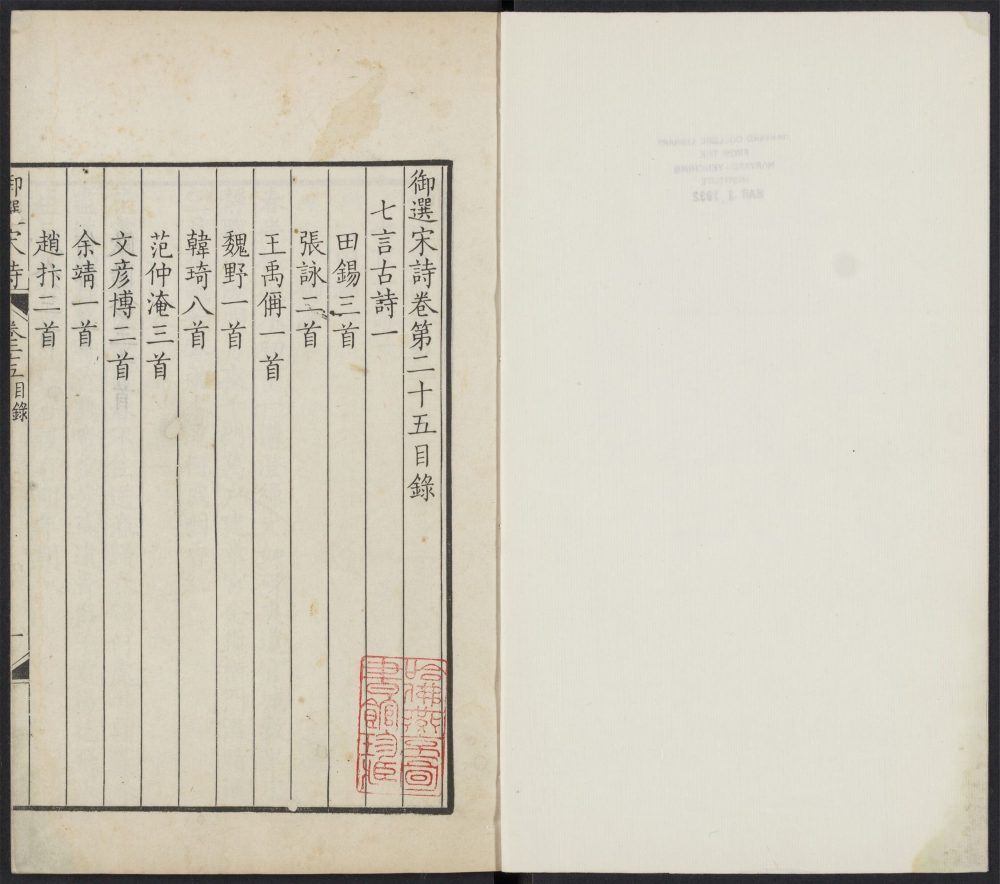 御選宋詩卷第二十五目錄
七言古詩一
田錫三首
張詠二首
王禹偁一首
魏野一首
韓琦八首
范仲淹三首
文彥博二首
余靖一首
趙抃二首
御選宋詩 卷二十五目錄 一
哈佛燕京圖
書館珍藏
HARVARD COLLEGE LIBRARY
FROM THE
HARVARD-YENCHING
INSTITUTE
MAR 3 1932